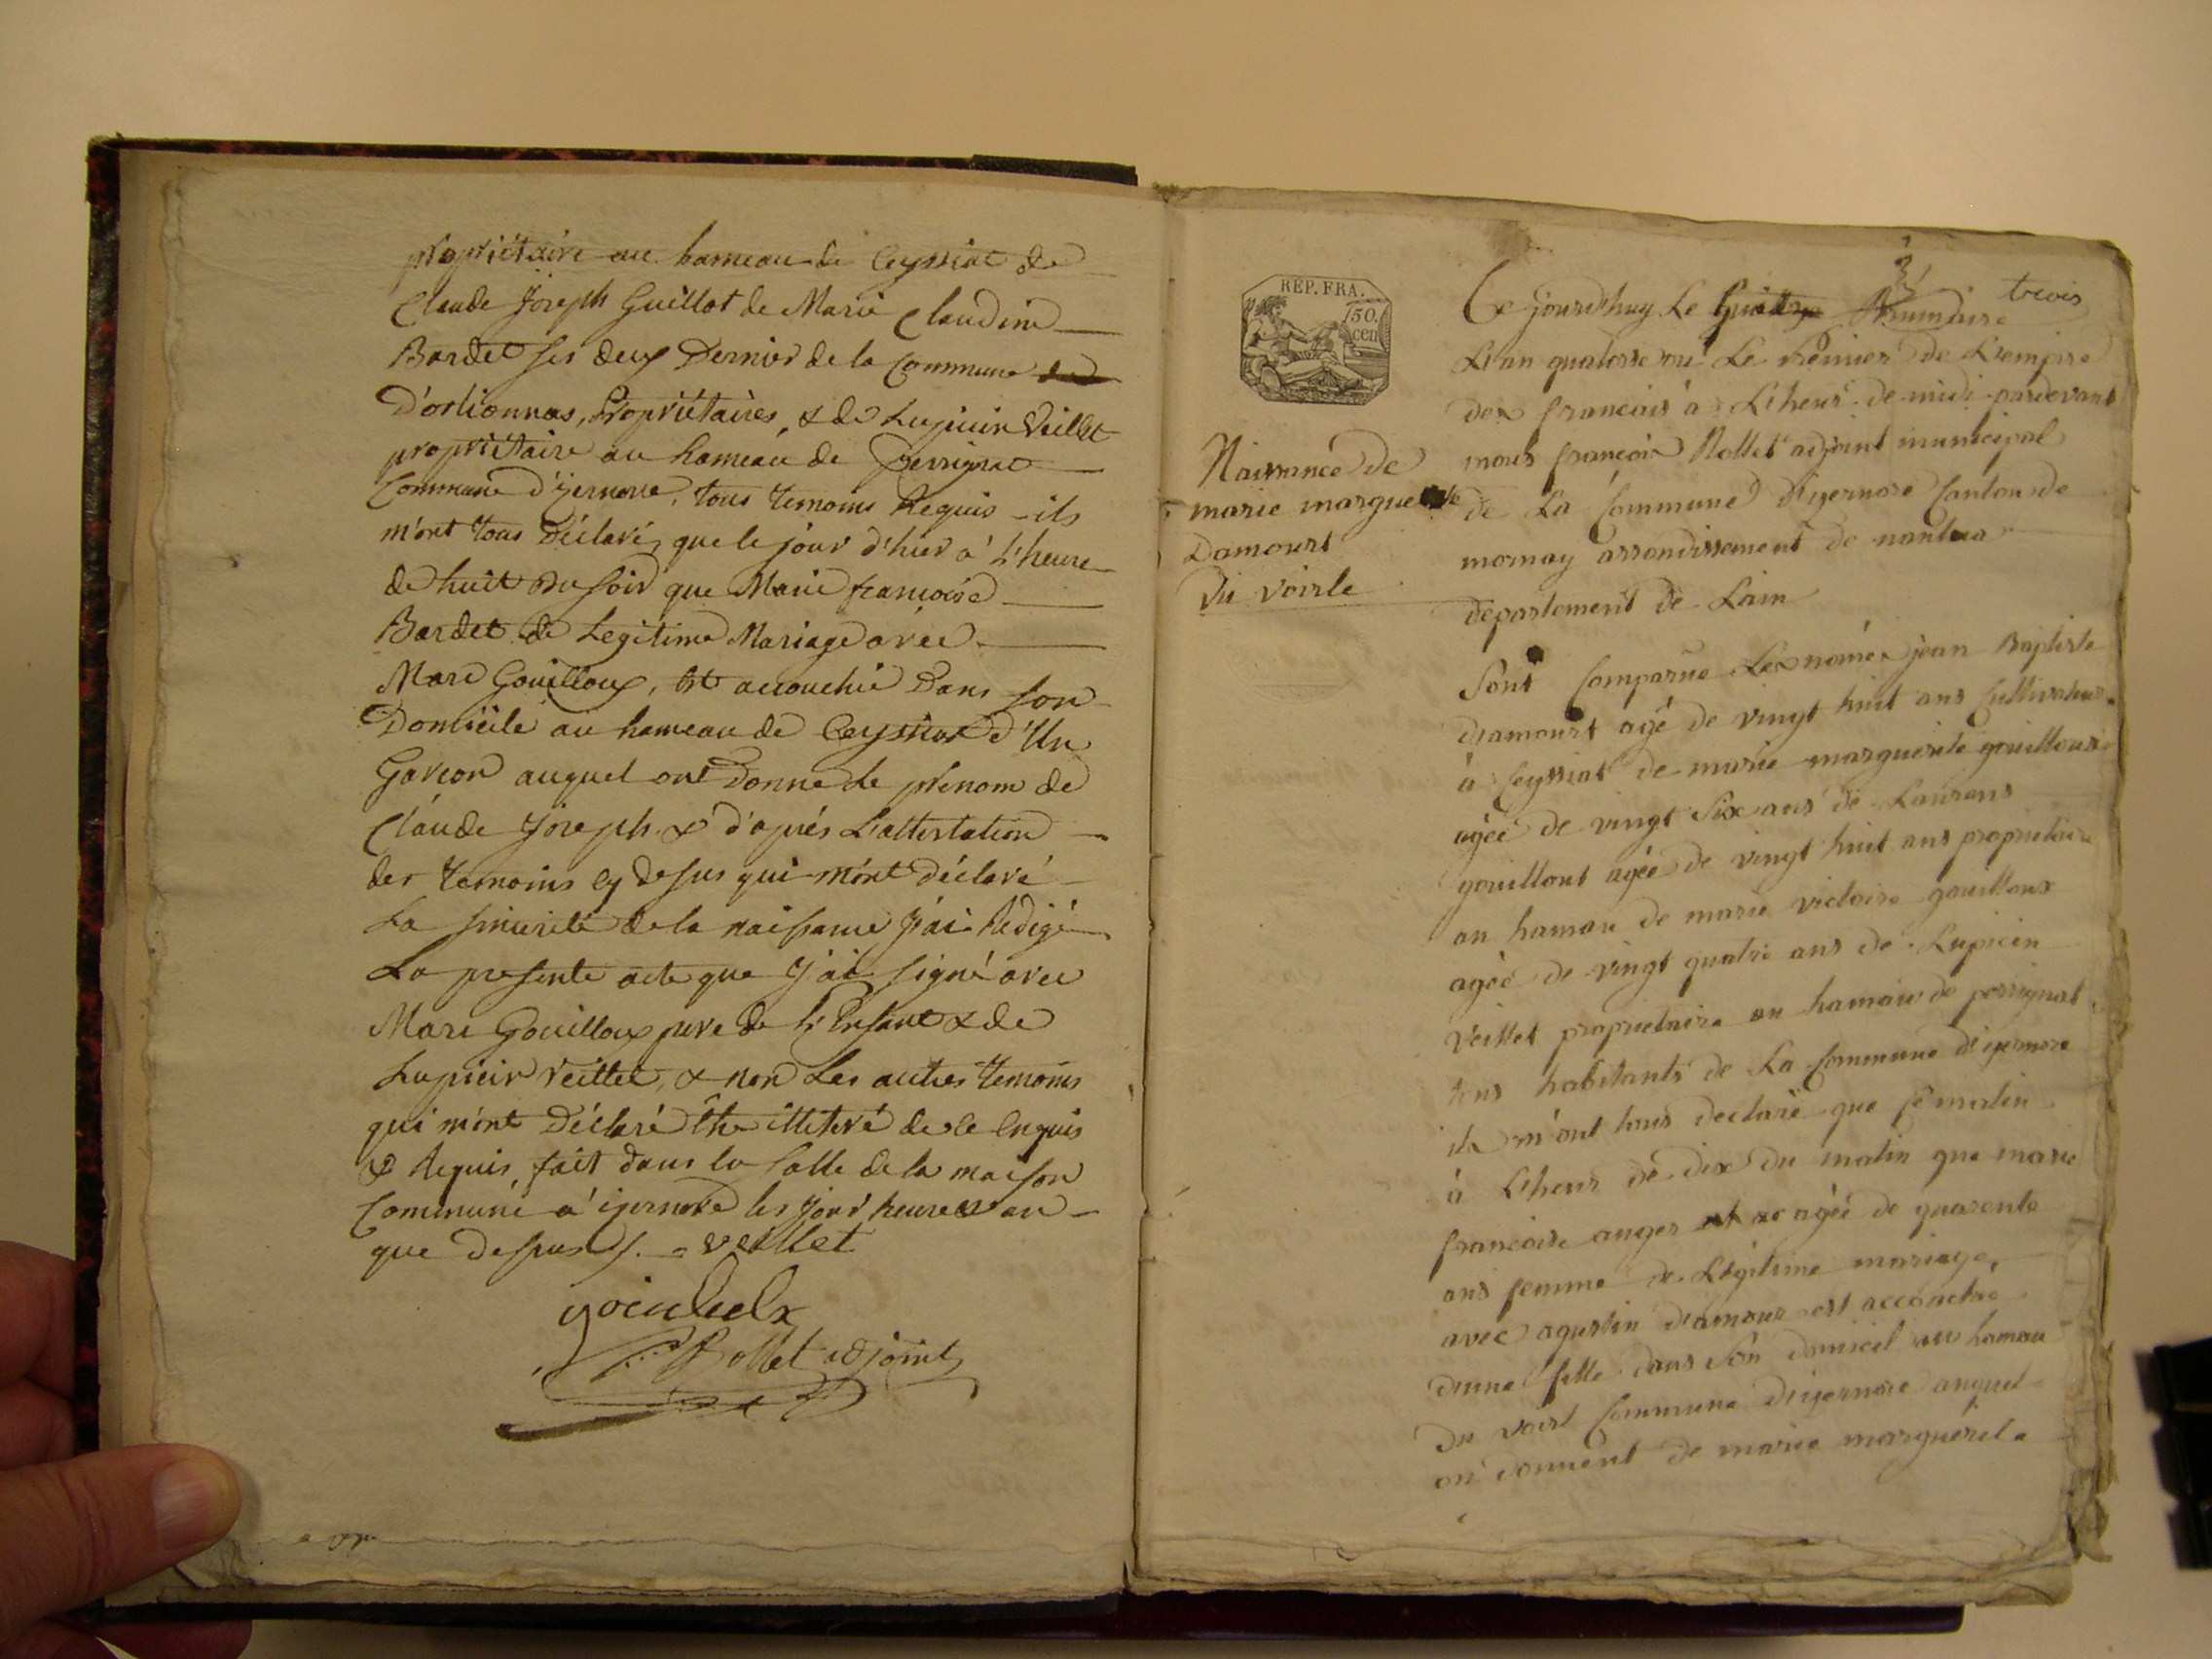 propriétaire au hameau de Ceyssiat de
Claude Joseph Guillot de Marie Claudine
Bardet ses deux Dernier de la Commune
D'ortionnas, Propriétaires, & de Lupicin Veillet
propriétaire au hameau de Perrignat
Commune d'izernore, tous temoins Requis ils
m'ont tous Déclaré, que le jour d'hier à L'heure
de huit du soir que Marie francoise
Bardet de Legitime Mariage avec
Marc Gouilloux, est accouchée Dans son
Domicile au hameau de Ceyssiat d'Un
Garcon auquel ont Donné le prénom de
Claude Joseph & d'après L'attestation
des temoins cy desus qui m'ont déclaré
La sincerité de la naissance J'ai Rédigé
La presente acte que j'ai signé avec
Marc Gouilloux pere de L'Enfant & de
Lupicin Veillet, & non Les autres temoins
qui m'ont Déclaré être illeteré de ce Enquis
& Requis, fait dans la salle de la maison
Commune à izernore les jour heure et an
que dessus. veillet
Rollet adjoint
REP. FRA.
50.
cen
Naissance de
marie marguerite
Damourt
du voirle
trois
Ce jourd'huy Le
L'an quatorse Le Premier de L'empire
des francais à L'heur de midi pardevant
nous françois Rollet adjoint municipal
de La Commune d'izernore Canton de
mornay arrondissement de nantua
departement de Lain
Sont Comparue Les nomées jean Baptiste
d'amourt agé de vingt huit ans Cultivateur
à Ceyssiat de marie marguerite gouilloux
agée de vingt six ans de Laurans
gouillout agée de vingt huit ans proprietaire
au hamau de marie victoire gouilloux
agée de vingt quatre ans de Lupicin
Veillet proprietaire au hamau de perrignat
tous habitants de La Commune d'izernore
ils m'ont tous declaré que se matin
à L'heur de dix du matin que marie
francoise anger agée de quarente
ans femme de Légitime mariage,
avec agustin d'amour est accouchée
d'une fille dans son domicil au hamau
du voirl Commune d'izernore auquel
on donnent de marie marguerite